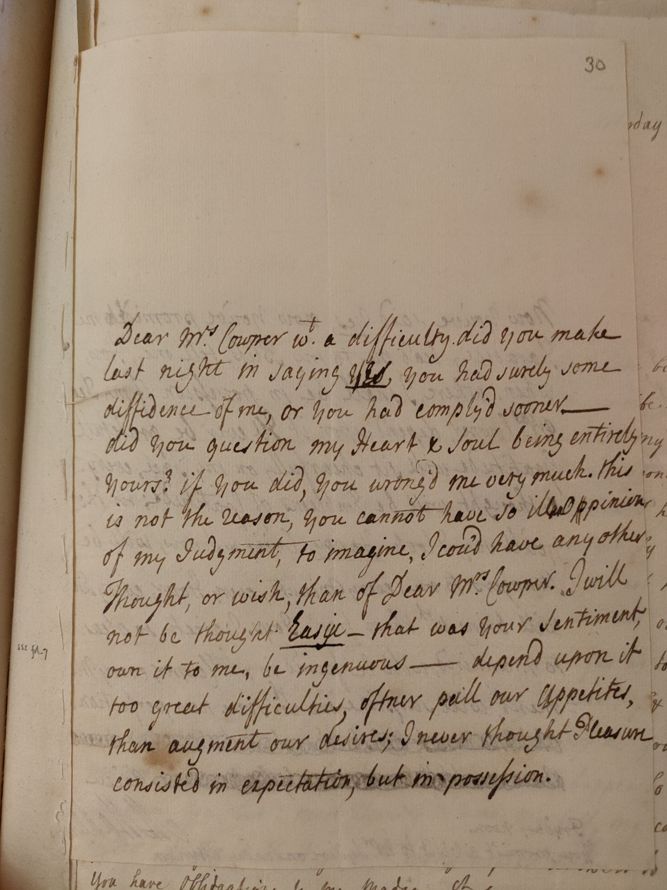 30
Dear Mrs Cowper wt. a difficulty did you make
last night in saying yes, you had surely some
diffidence of me, or you had comply'd sooner—
did you question my Heart & Soul being entirely
yours? if you did, you wrong'd me very much. this
is not the reason, you cannot have so ill Oppinion
of my Judgment, to imagine, I cou'd have any other
Thought, or wish, than of Dear Mrs Cowper. I will
not be thought Easie — that was your sentiment,
own it to me, be ingenuous — depend upon it
too great difficulties, oftner pall our appetites,
than augment our desires; I never thought Pleasure
consisted in expectation, but in possession.
you have Obligations to my